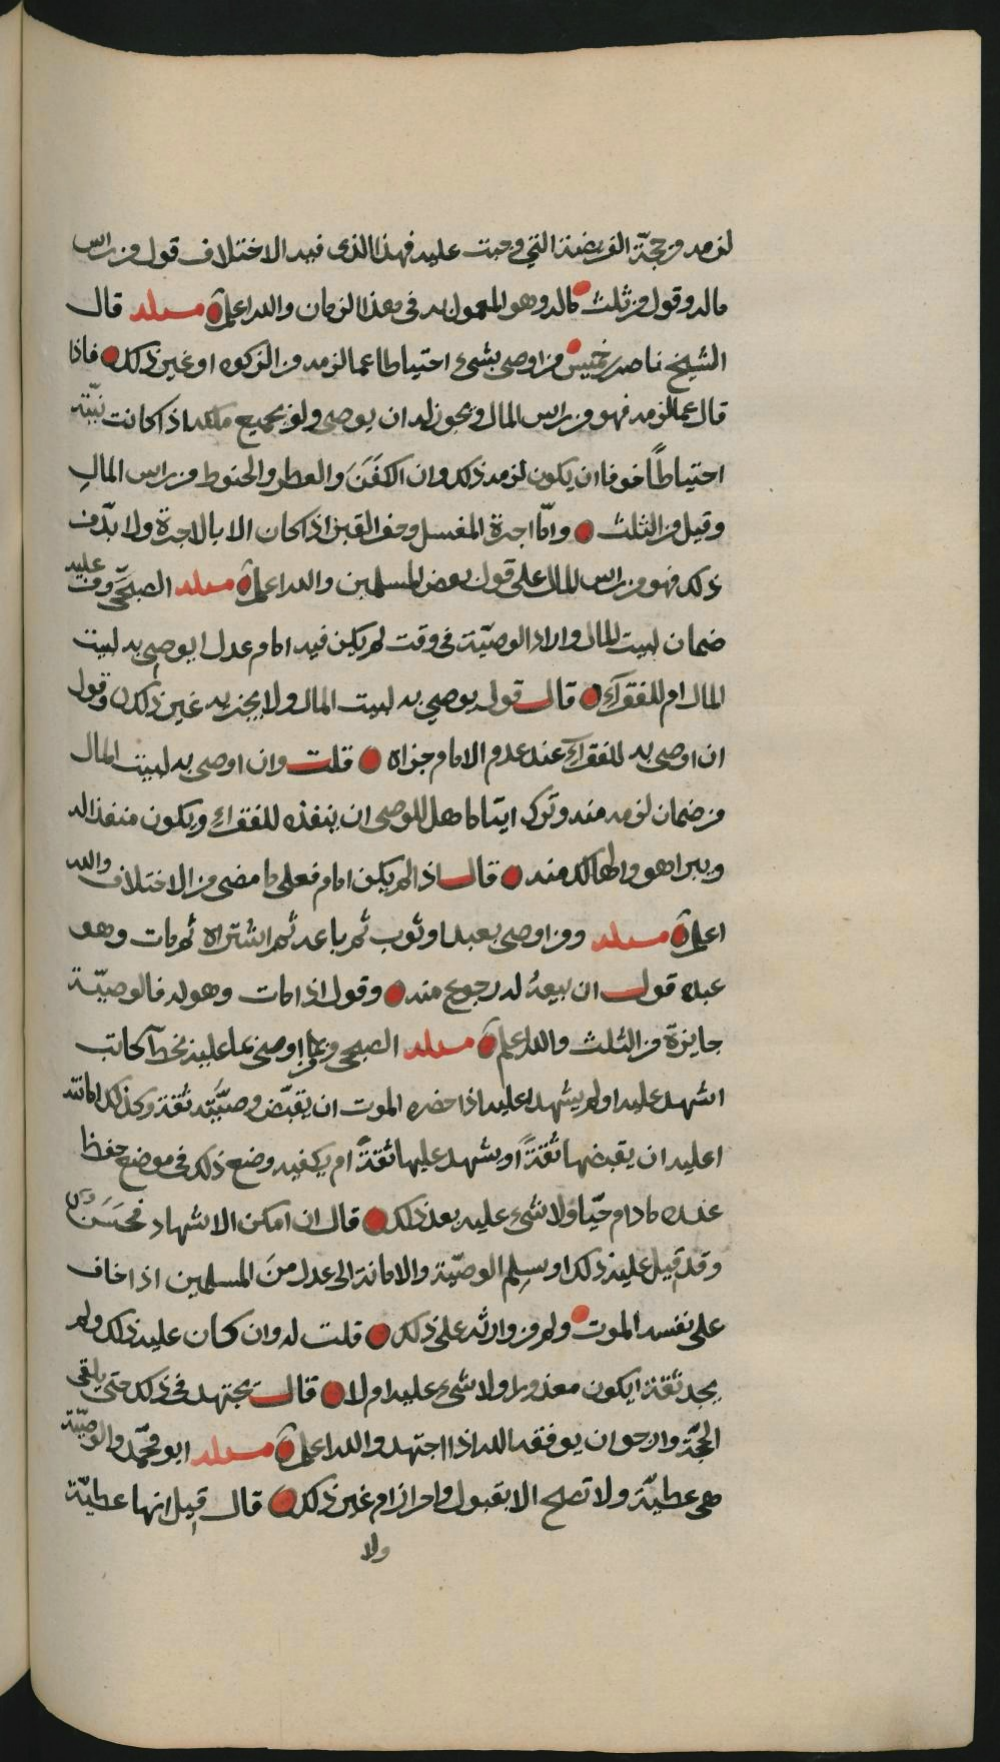 لزمه من حجة الفريضة التي وجبت عليه فهذا الذى فيه الاختلاف قول من راس
ماله وقول من ثلث ماله وهو المعمول به في هذا الزمان والله اعلم مسئلة قال
الشيخ ناصر بن خميس من اوصى بشىء احتياطا عما لزمه من الزكوه او غير ذلك فاذا
قال عما لزمه فهو من راس المال ويجوز له ان يوصى ولو بجميع ملكه اذا كانت نيّته
احتياطًا خوفا ان يكون لزمه ذلك وان الكفَنَ والعطر والحنوط من راس المالِ
وقيل من الثلث وامّا اجرة المغسل وحفر القبر اذا كان الا بالاجرة ولا بدّ من
ذلك فهو من راس المال على قول بعض المسلمين والله اعلم مسئلة الصبحّي ومن عليه
ضمان لبيت المال واراد الوصيّة في وقت لم يكن فيه امام عدل ايوصى به لبيت
المال ام للفقرآءِ قال قول يوصي به لبيت المال ولا يجزيه غير ذلك وقول
ان اوصى به للفقرآءِ عند عدم الامام جزاه قلت وان اوصى به لبيت المال
من ضمان لزمه منه وترك ايتاما هل للوصى ان ينفذه للفقراءِ ويكون منفذا له
ويبرا هو والهالك منه قال اذا لم يكن امام فعلى ما مضى من الاختلاف والله
اعلم مسئلة ومن اوصى بعبد او ثوب ثم باعه ثم اشتراه ثم مات وهو
عبده قول ان بيعهُ له رجوع منه وقول اذا مات وهو له فالوصيّة
جايزة من الثلث والله اعلم مسئلة الصبحي ومن اوصى بما عليه بخط كاتب
اشهد عليه او لم يشهد اعليه اذا حضره الموت ان يقبّض وصيّته ثقة وكذلك امانته
اعليه ان يقبضها ثقةً او يشهد عليها ثقةً ام يكفيه وضع ذلك في موضع حفظ
عنده ما دام حيّا ولا شىء عليه بعد ذلك قال ان امكن الاشهاد فحَسَن
وقد قيل عليه ذلك او يسلم الوصيّة والامانة الى عدل منَ المسلمين اذا خاف
على نفسه الموت ولم وارثه على ذلك قلت له وان كان عليه ذلك ولم
يجد ثقة ايكون معذورا ولا شىء عليه ام لا قال يجتهد في ذلك حتى يلقى
الحجّة وارجو ان يوفقه الله اذا اجتهد والله اعلم مسئلة ابو محمّد والوصيّة
هى عطيّة ولا تصلح الا بقبول واحراز ام غير ذلك قال قيل انها عطيّة
ولا